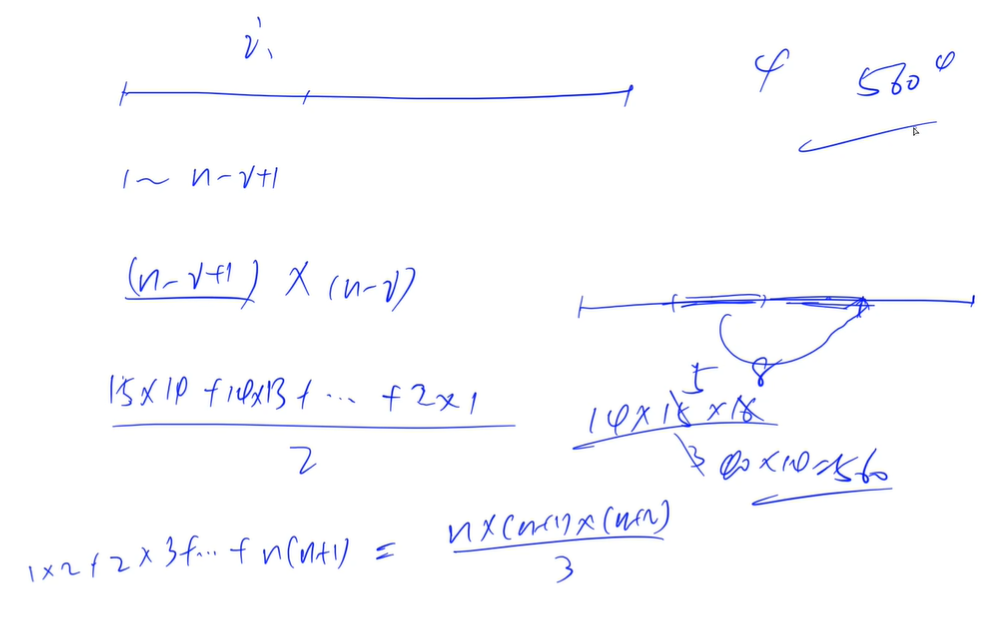 i
4 560⁴
1 ~ n-i+1
(n-i+1) × (n-i)
15×14 + 14×13 + ... + 2×1
2
5 8
14×15×16
3 40×14=560
1×2+2×3+...+n(n+1) = n×(n+1)×(n+2)
3